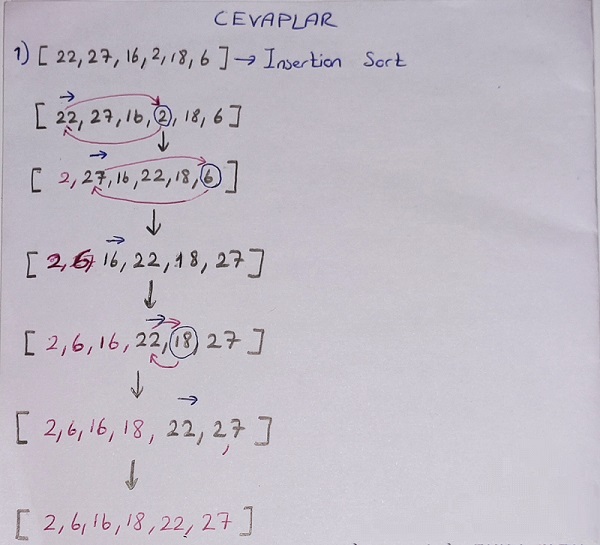 CEVAPLAR
1) [ 22, 27, 16, 2, 18, 6 ] → Insertion Sort
[ 22, 27, 16, 2, 18, 6 ]
[ 2, 27, 16, 22, 18, 6 ]
[ 2, 6, 16, 22, 18, 27 ]
[ 2, 6, 16, 22, 18, 27 ]
[ 2, 6, 16, 18, 22, 27 ]
[ 2, 6, 16, 18, 22, 27 ]